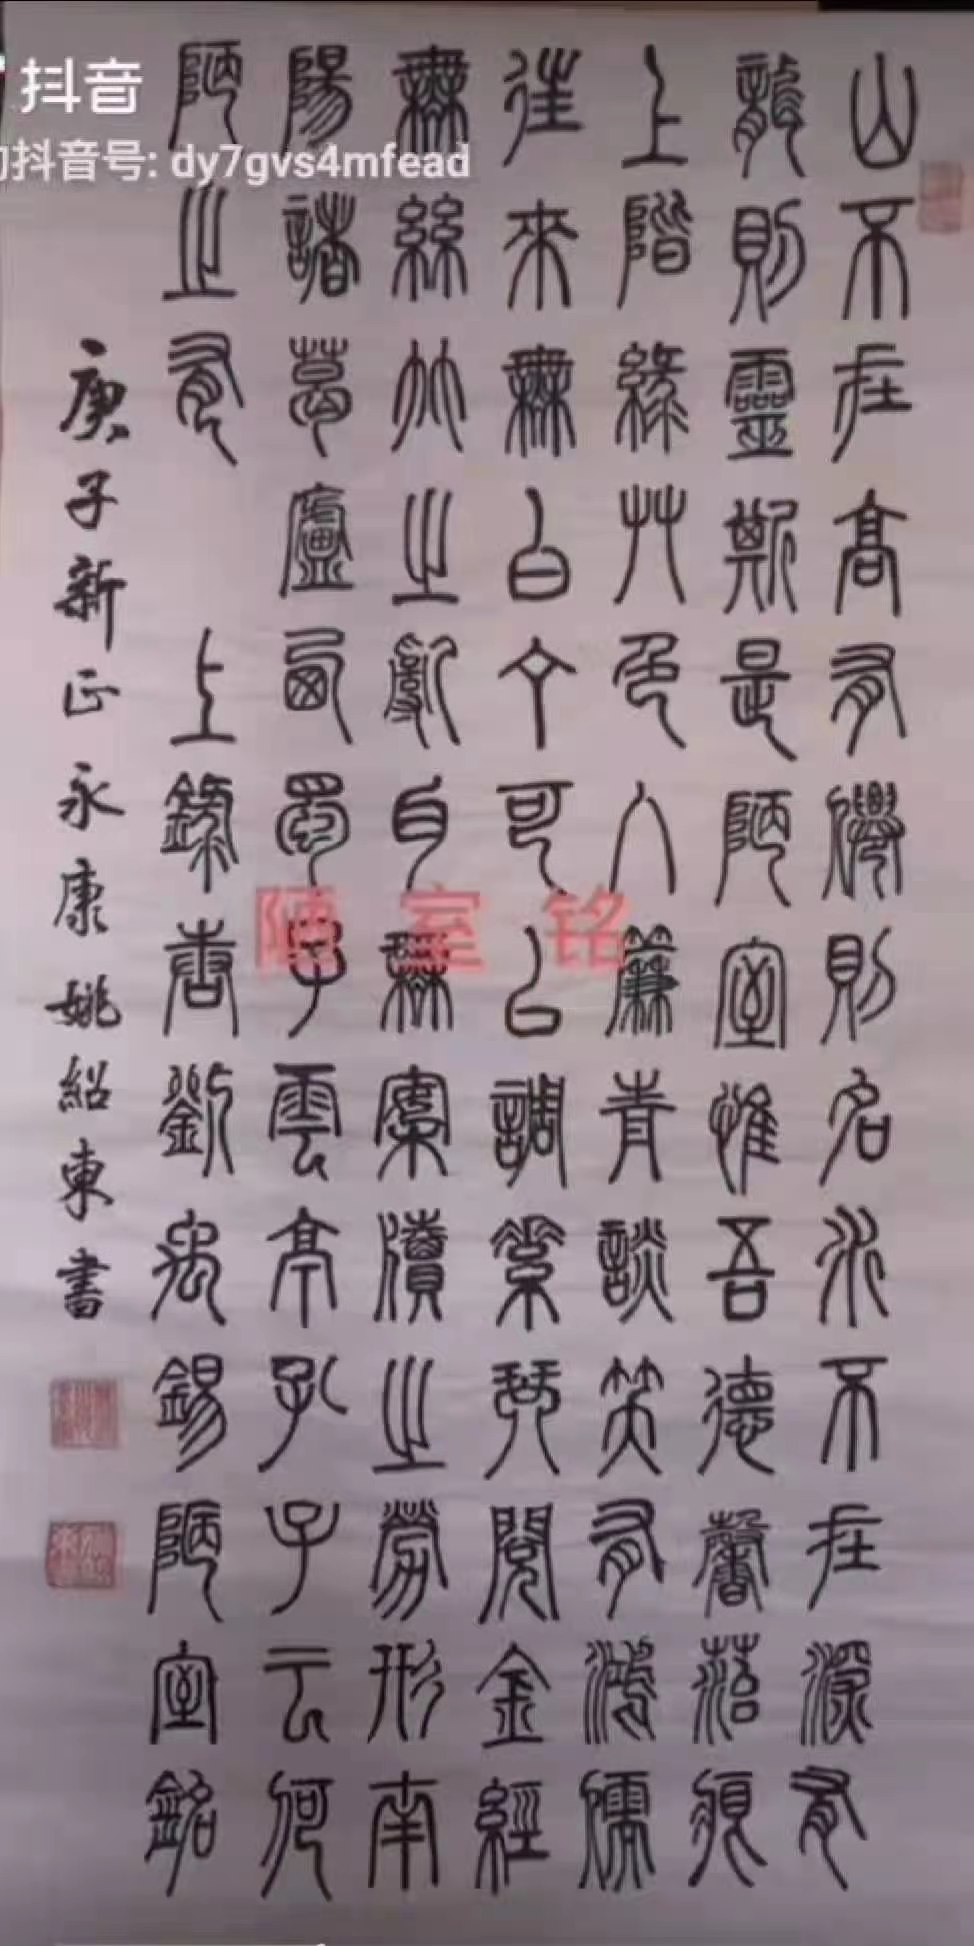 抖音
抖音号: dy7gvs4mfead
山不在高有僊則名水不在深有
龍則靈斯是陋室惟吾德馨菭痕
上階綠艸色入簾青談笑有鴻儒
往來無白丁可以調素琴閱金經
無絲竹之亂耳無案牘之勞形南
陽諸葛廬西蜀子雲亭孔子云何
陋之有 上錄唐劉禹錫陋室銘
庚子新正永康姚紹東書
陋室铭